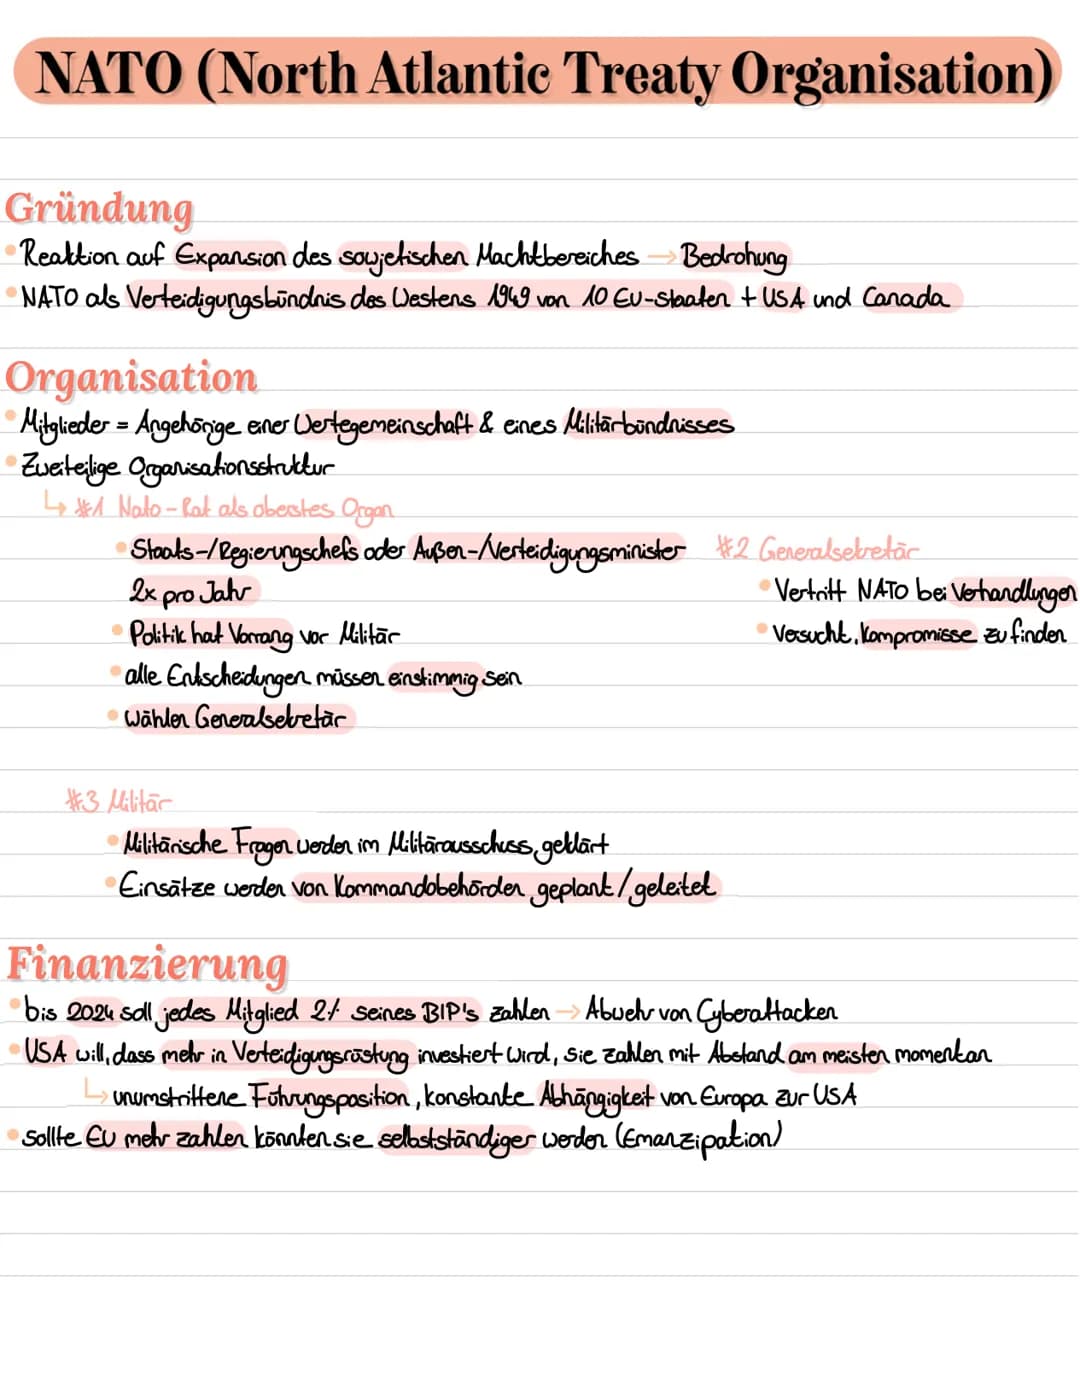 NATO (North Atlantic Treaty Organisation)
Gründung
• Reaktion auf Expansion des sowjetischen Machtbereiches → Bedrohung
• NATO als Verteidigungsbündnis des Westens 1949 von 10 EU-Staaten + USA und Canada
Organisation
• Mitglieder = Angehörige einer Wertegemeinschaft & eines Militärbündnisses
• Zweiteilige Organisationsstruktur
↳ #1 Nato-Rat als oberstes Organ
• Staats-/Regierungschefs oder Außen-/Verteidigungsminister
2x pro Jahr
• Politik hat Vorrang vor Militär
• alle Entscheidungen müssen einstimmig sein
• wählen Generalsekretär
#2 Generalsekretär
• Vertritt NATO bei Verhandlungen
• Versucht, Kompromisse zu finden
#3 Militär
• Militärische Fragen werden im Militärausschuss geklärt
• Einsätze werden von Kommandobehörden geplant/geleitet
Finanzierung
• bis 2024 soll jedes Mitglied 2% seines BIP's zahlen → Abwehr von Cyberattacken
• USA will, dass mehr in Verteidigungsrüstung investiert wird, sie zahlen mit Abstand am meisten momentan
↳ unumstrittene Führungsposition, konstante Abhängigkeit von Europa zur USA
• sollte EU mehr zahlen könnten sie selbstständiger werden (Emanzipation)